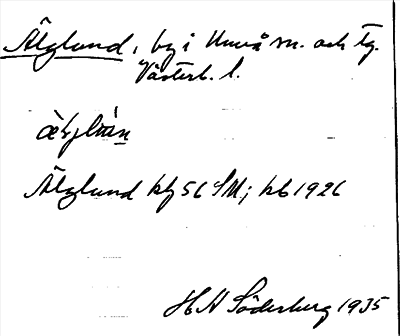 Älglund, by i Umeå sn. och tg.
Västerb. l.
Älglund kbf 56 SM; kb 1926
H N Söderberg 1935